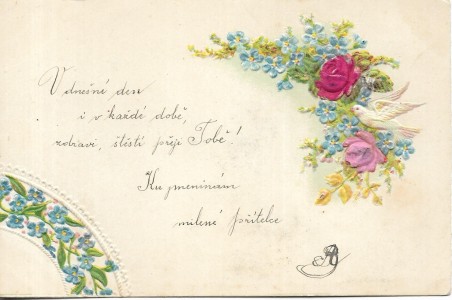 V dnešní den
i v každé době,
zdraví, štěstí přeji Tobě!
Ku jmeninám
milené přítelce